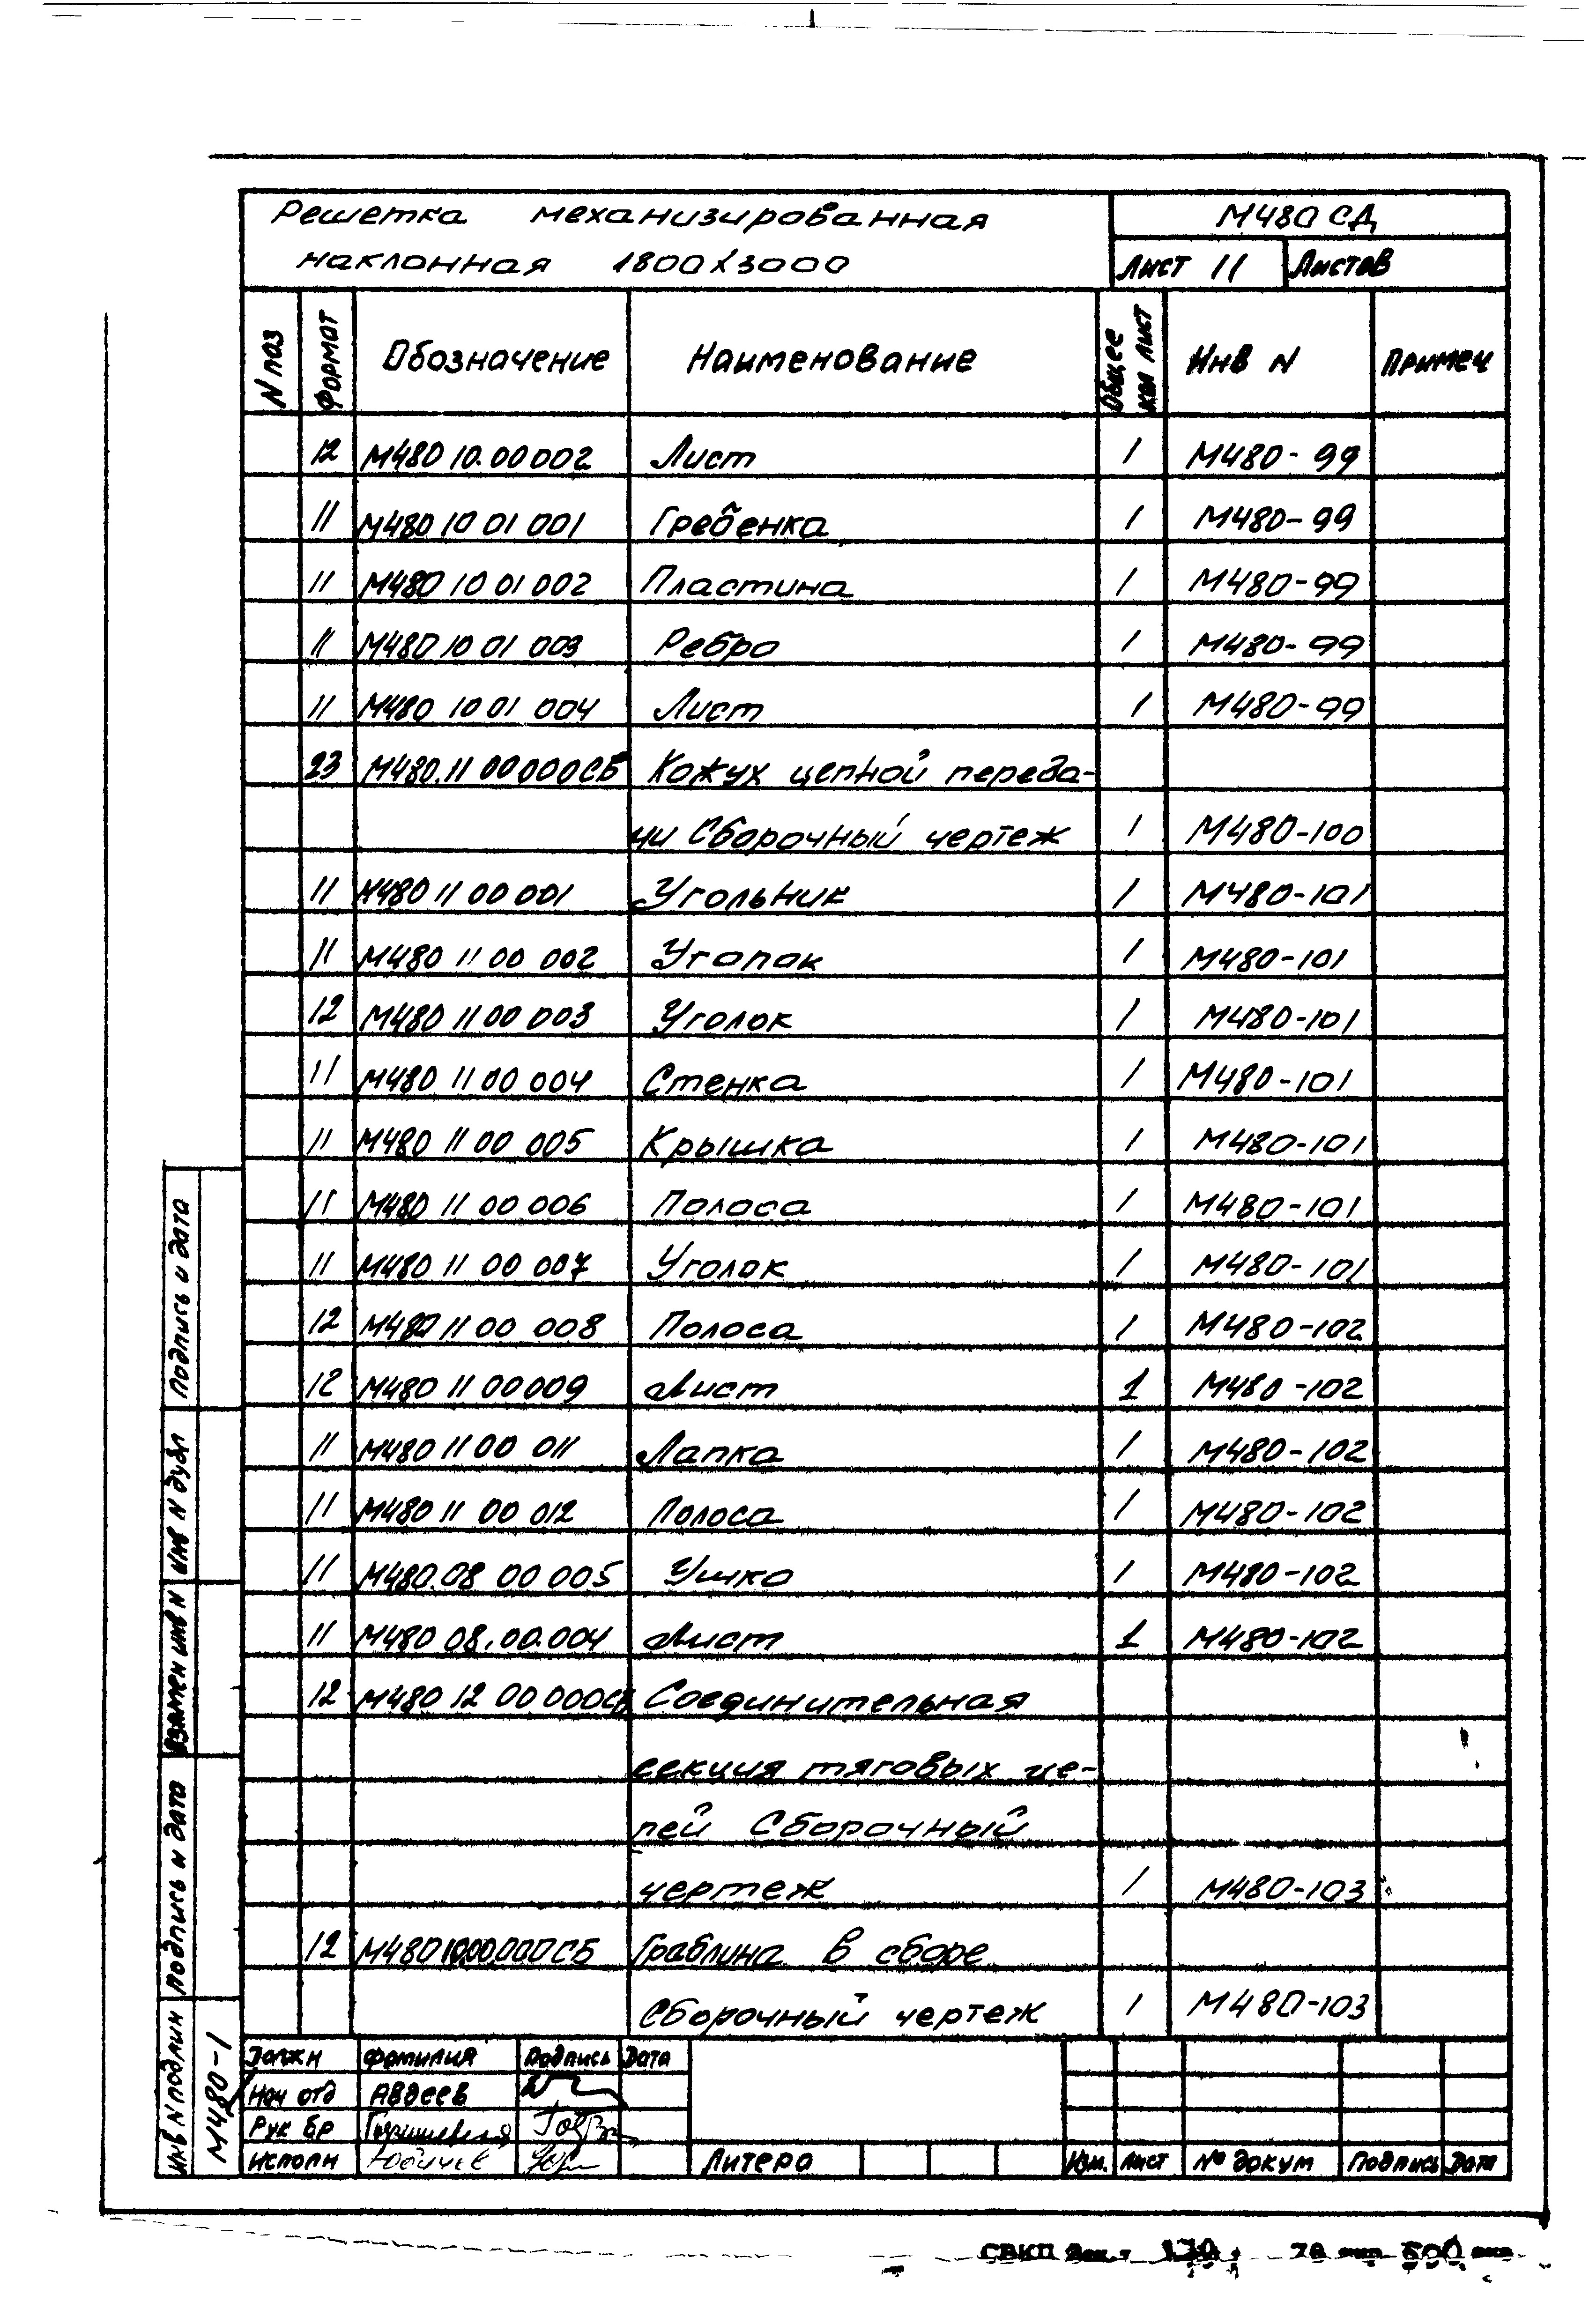 Решетка механизированная М480 СД
наклонная 1800х3000 Лист 11 Листов
N поз Формат Обозначение Наименование Общее кол лист Инв N Примеч
12 М480 10.00 002 Лист 1 М480-99
11 М480 10 01 001 Гребенка 1 М480-99
11 М480 10 01 002 Пластина 1 М480-99
11 М480 10 01 003 Ребро 1 М480-99
11 М480 10 01 004 Лист 1 М480-99
23 М480.11 00000СБ Кожух цепной переда-
чи Сборочный чертеж 1 М480-100
11 М480 11 00 001 Угольник 1 М480-101
11 М480 11 00 002 Уголок 1 М480-101
12 М480 11 00 003 Уголок 1 М480-101
11 М480 11 00 004 Стенка 1 М480-101
11 М480 11 00 005 Крышка 1 М480-101
11 М480 11 00 006 Полоса 1 М480-101
11 М480 11 00 007 Уголок 1 М480-101
12 М480 11 00 008 Полоса 1 М480-102
12 М480 11 00009 Лист 1 М480-102
11 М480 11 00 011 Лапка 1 М480-102
11 М480 11 00 012 Полоса 1 М480-102
11 М480.08 00 005 Ушко 1 М480-102
11 М480 08.00.004 Лист 1 М480-102
12 М480 12 00 000СБ Соединительная
секция тяговых це-
пей Сборочный
чертеж 1 М480-103
12 М480 10.00.000СБ Граблина в сборе
Сборочный чертеж 1 М480-103
Должн Фамилия Подпись Дата
Нач отд Авдеев
Рук бр
Исполн Литера Изм. Лист № докум Подпись Дата
Подпись и дата
Инв N дубл
Взамен инв N
Подпись и дата
Инв N подлин М480-1